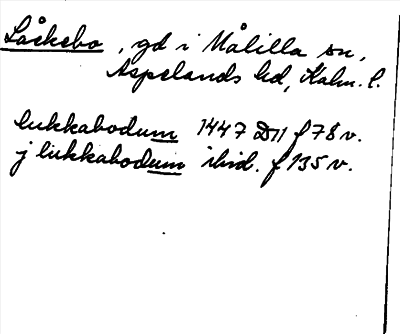 Låksbo, gd i Målilla sn,
Aspelands hd, Kalm. l.
lukkabodum 1447 D11 f 78 v.
j lukkabodum ibid. f 135 v.